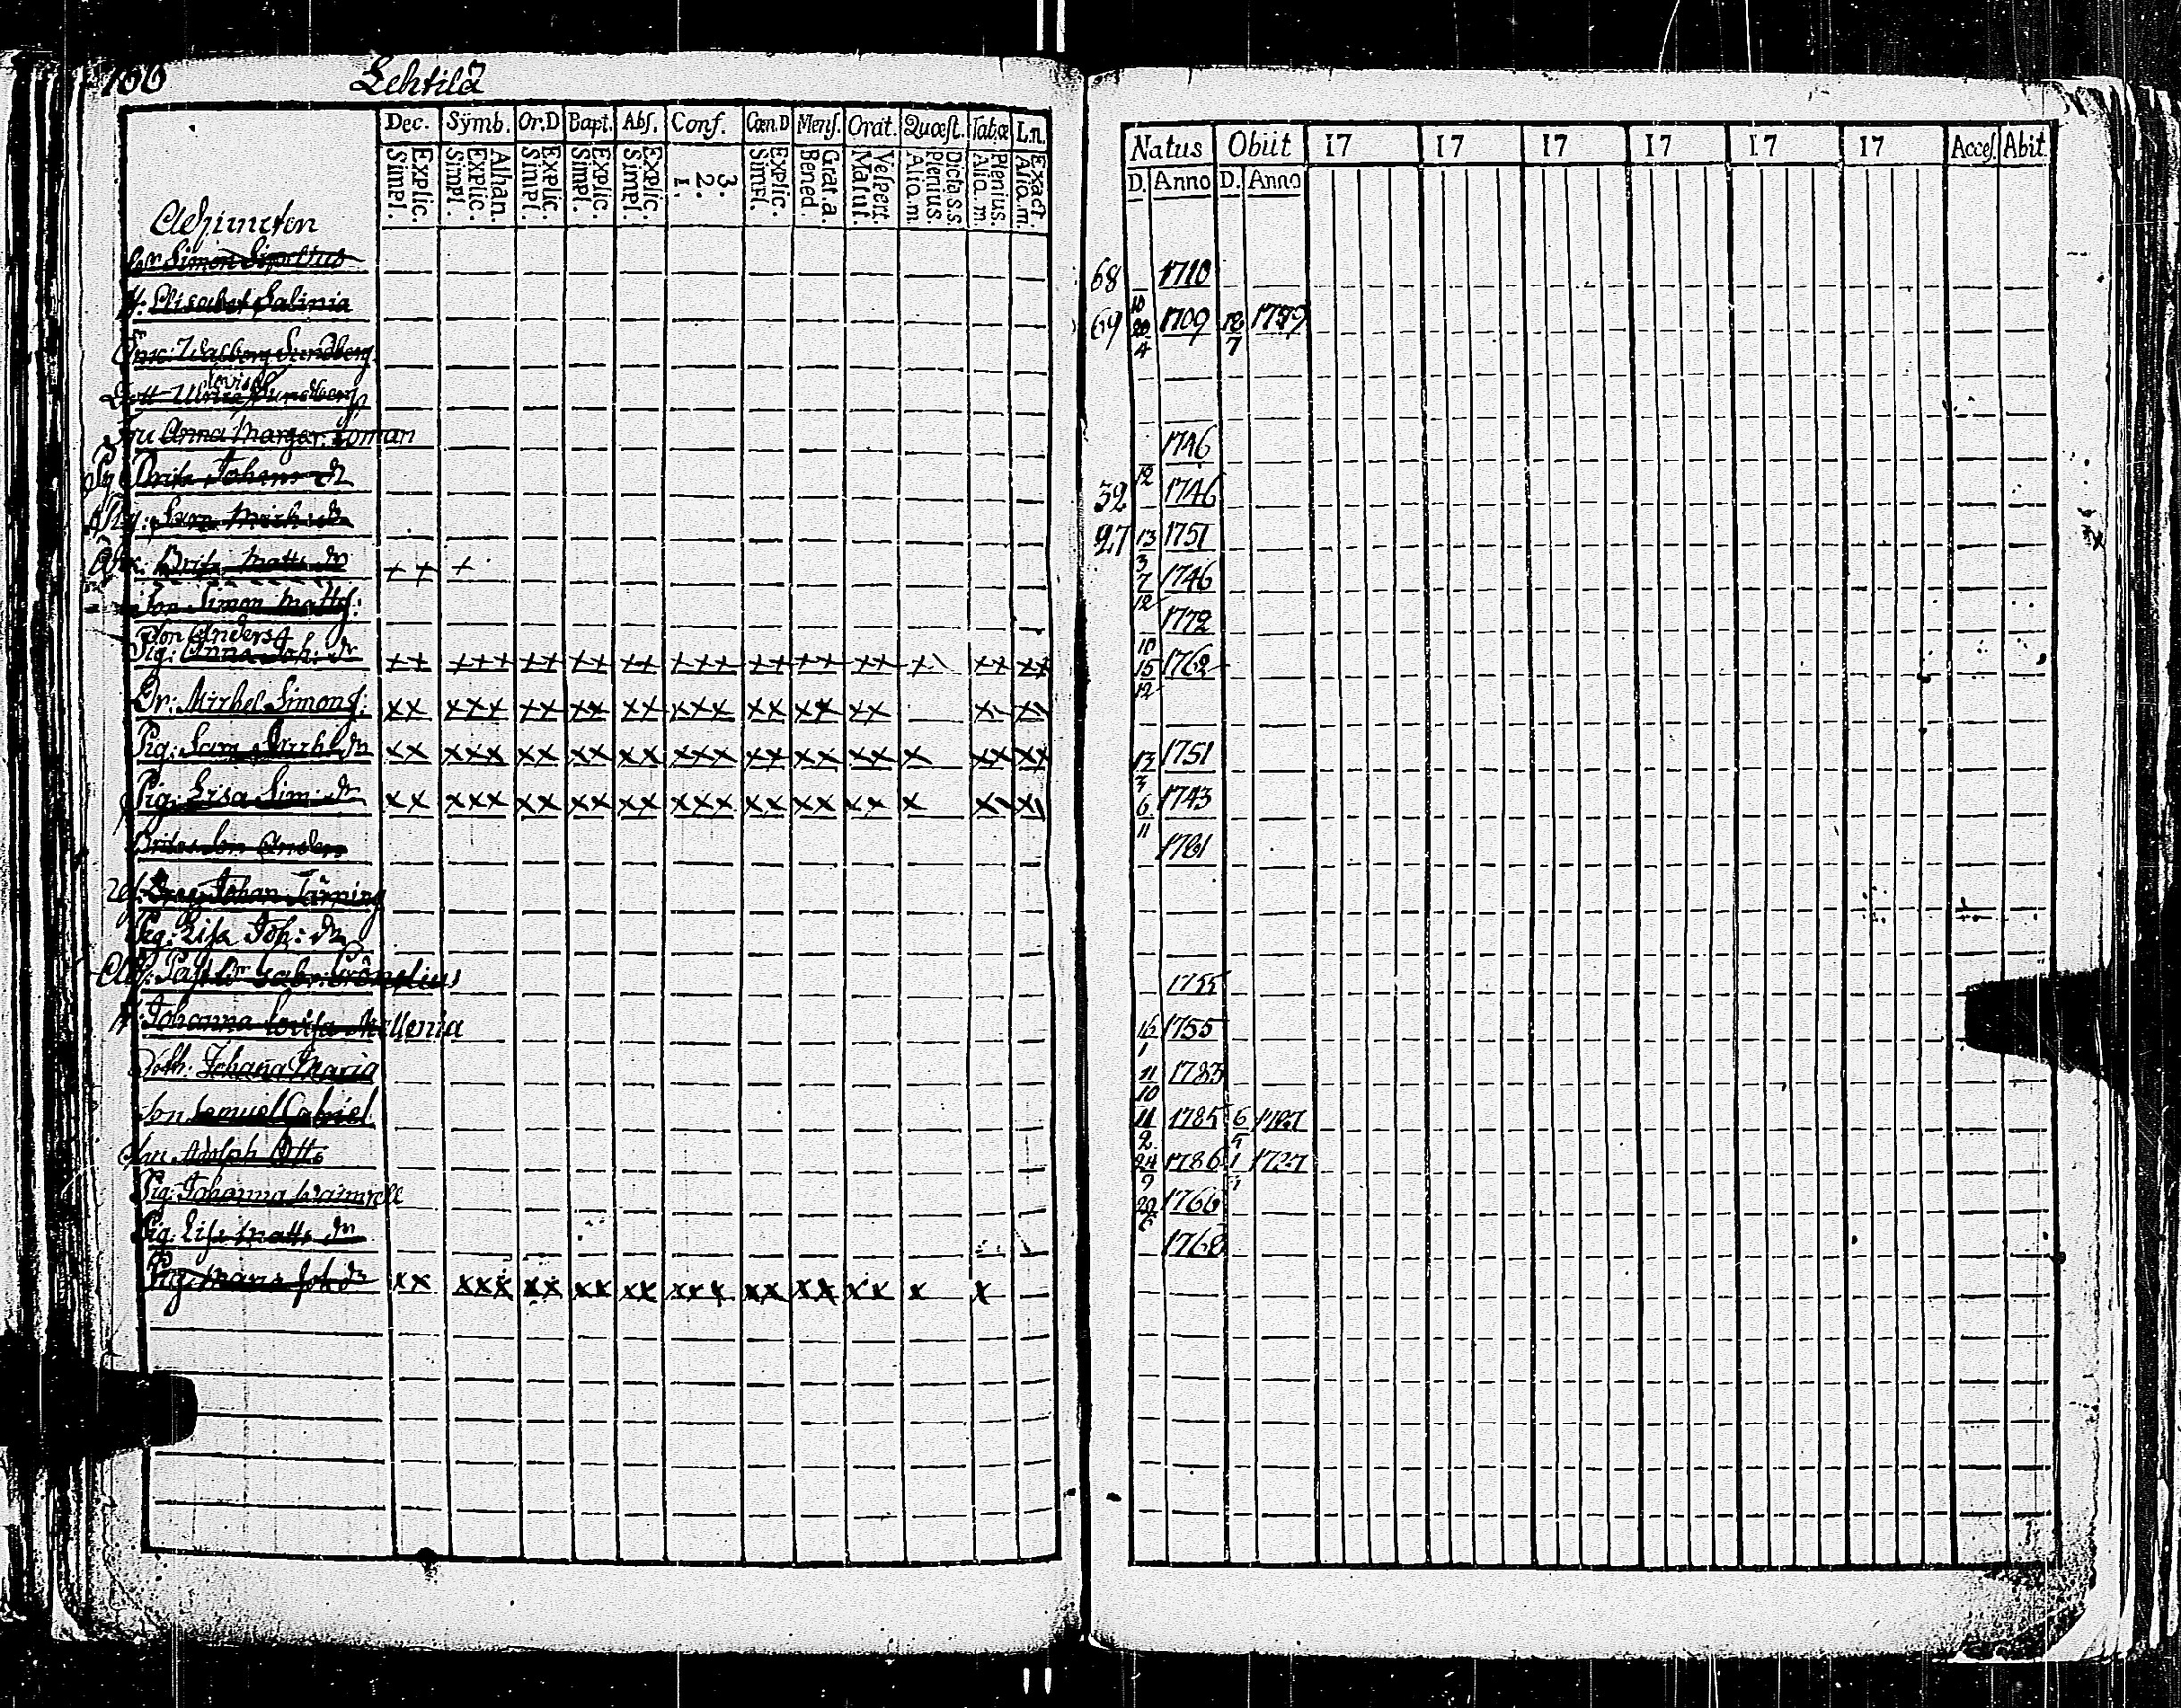 166 Lehtilä
Dec. Sÿmb. Or.D Bapt. Abſ. Conf. Cœn.D Menſ. Orat. Quœſt. Tab.œ L.n.
Explic. Simpl. Athan. Explic. Simpl. Explic. Simpl. Explic. Simpl. Explic. Simpl. 3. 2. 1. Explic. Simpl. Grat.a. Bened. Veſpert. Matut. Dicta s.s. Plenius. Aliq.m. Plenius. Aliq.m. Exact. Aliq.m.
Natus Obiit 17 17 17 17 17 17 Acceſ. Abit
D. Anno D. Anno
Adjuncten
Simon 68 1710
H: Elisabet Salinia 69 20/4 1709 12/7 1779
Enk: Walborg Sundberg
Lovisa
Dott Ulrica Sundberg
Fru Anna Margar: Homan 1746
Brita Johans dr 32 12 1746
Pig: Sara Mich: dr 27 13/3 1751
Brita Matts dr + + + 7/12 1746
Son Simon Mattſ: 1772
Son Anders
Pig: Anna Joh: dr ++ +++ ++ ++ ++ +++ ++ ++ ++ + ++ ++ 15/12 1762
Dr: Michel Simonſ: xx xxx xx xx xx xxx xx xx xx x x
Pig: Sara Michl dr xx xxx xx xx xx xxx xx xx xx x xx xx 13/3 1751
Pig: Lisa Sim: dr xx xxx xx xx xx xxx xx xx xx x x x 6/11 1743
Britas Son Anders 1761
Johan Tärning
Pig: Lisa Joh: dr
Gabr: Cronelius 1755
H: Johanna Lovisa Mellenia 16/1 1755
Doth: Johana Maria 11/10 1783
Son Samuel Gabriel 11/2 1785 6/5 1787
Adolph Otto 24/9 1786 1 1787
Pig: Johanna 20/6 1766
Pig: Lisa Matts dr 1768
Pig: Maria Joh dr xx xxx xx xx xx xxx xx xx xx x x